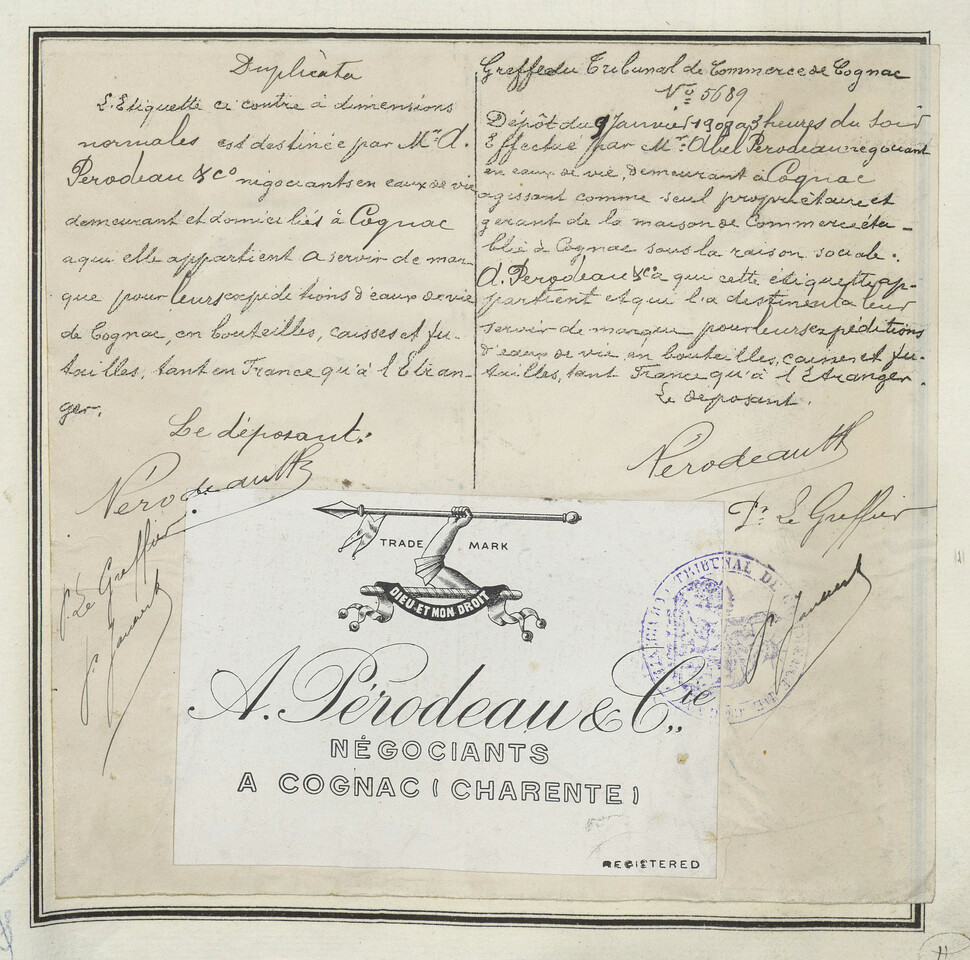 Duplicata
L'Etiquette ci contre à dimensions
normales est destinée par Mr A.
Perodeau & Co négociants en eaux de vie
demeurant et domiciliés à Cognac
a qui elle appartient a servir de mar-
que pour leurs expéditions d'eaux de vie
de Cognac, en bouteilles, caisses et fu-
tailles, tant en France qu'à l'Etran-
ger.
Le déposant.
Pérodeau
p. Le Greffier
Greffe du Tribunal de Commerce de Cognac
No 5689
Dépôt du 9 Janvier 1908 a 3 heures du Soir
Effectué par Mr Abel Perodeau négociant
en eaux de vie, demeurant à Cognac
agissant comme seul propriétaire et
gerant de la maison de Commerce éta-
blie à Cognac sous la raison sociale.
A. Perodeau & Co à qui cette étiquette ap-
partient et qui l'a destinent a leur
servir de marque pour leurs expéditions
d'eaux de vie en bouteilles, caisses et fu-
tailles, tant France qu'à l'Etranger.
Le deposant.
Pérodeau
Pr Le Greffier
TRADE MARK
DIEU·ET MON DROIT
A. Pérodeau & Cie
NÉGOCIANTS
A COGNAC (CHARENTE)
REGISTERED
TRIBUNAL DE